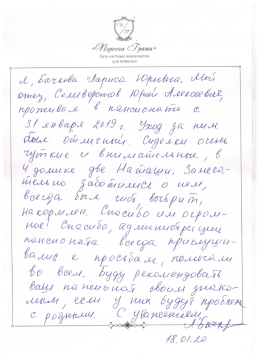 «Персона Грата»
Сеть частных пансионатов
для пожилых
Я, Бачкова Лариса Юрьевна. Мой
отец, Селиверстов Юрий Алексеевич,
проживал в пансионате с
31 января 2019 г. Уход за ним
был отличный. Сиделки очень
чуткие и внимательные, в
4 домике две Наташи. Замеча-
тельно заботились о нем,
всегда был чист, выбрит,
накормлен. Спасибо им огром-
ное! Спасибо, администрации
пансионата всегда прислуши-
вались к просьбам, помогали
во всем. Буду рекомендовать
ваш пансионат своим знако-
мым, если у них будут проблемы
с родными. С уважением,
18.01.20